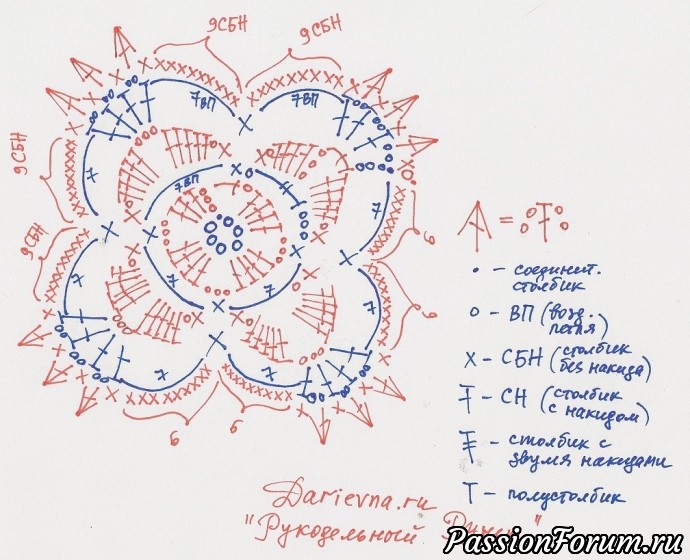 9СБН
9СБН
7ВП
7ВП
9СБН
7
7ВП
7
9СБН
7
7
9
7
7
9
7
7
9
9
= 
• - соединит.
столбик
о - ВП (возд.
петля)
х - СБН (столбик
без накида)
СН (столбик
с накидом)
- столбик с
двумя накидами
Т - полустолбик
Darievna.ru
"Рукодельный
"
PassionForum.ru